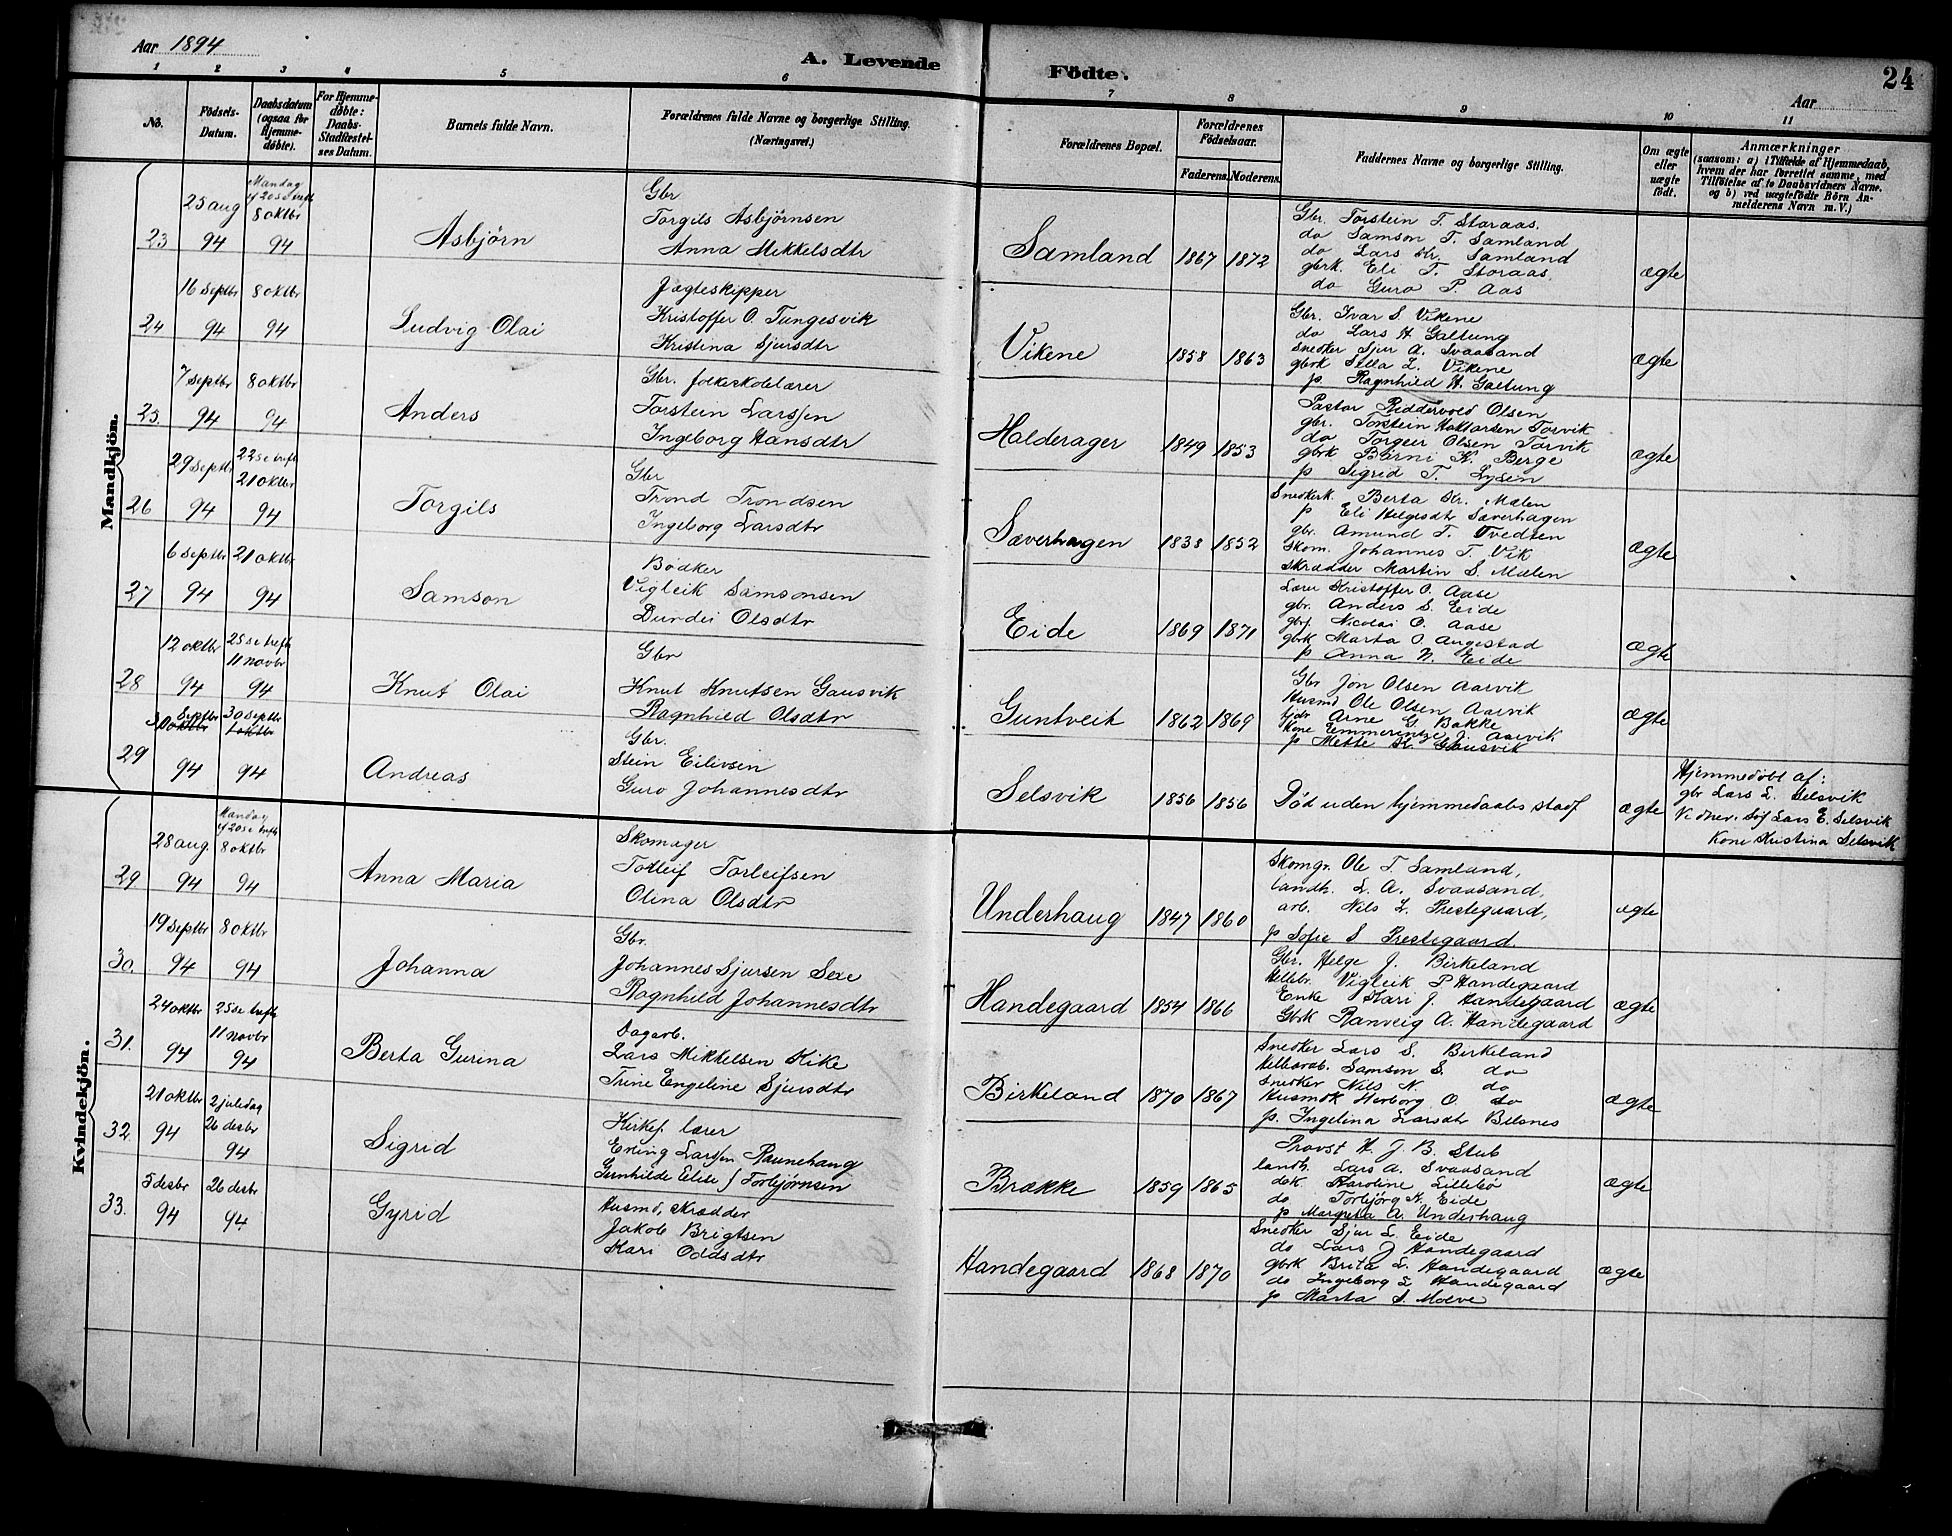 Aar 1894
A. Levende
Födte.
24
Aar
1 2 3 4 5 6 7 8 9 10 11
No.
Födsels-Datum.
Daabsdatum (ogsaa for Hjemmedøbte).
For Hjemmedøbte: Daabs-Stadfæstelses Datum.
Barnets fulde Navn.
Forældrenes fulde Navne og borgerlige Stilling.
(Næringsvei.)
Forældrenes Bopæl.
Forældrenes Födselsaar.
Faderens. Moderens.
Faddernes Navne og borgerlige Stilling.
Om ægte eller uægte født.
Anmærkninger
(saasom: a) i Tilfælde af Hjemmedaab, hvem der har forrettet samme, med Tilföielse af to Daabsvidners Navne, og b) ved uægtefödte Börn Anmelderens Navn m. V.)
Mandkjön.
23
25 aug 94
Mandag ef 20 se trefh 8 oktbr 94
Asbjörn
Gbr
Torgils Asbjörnsen
Anna Mikkelsdtr
Samland
1867 1872
Gbr. Torstein T. Storaas.
do Samson T. Samland
do Lars Kr. Samland
gbrk. Eli T. Storaas
do Guro P. Aas
ægte
24
16 septbr 94
8 oktbr 94
Ludvig Olai
Jægteskipper
Kristoffer O. Tungesvik
Kristina Sjursdtr
Vikene
1858 1863
Gbr. Ivar S. Vikene
do Lars H. Galtung
Snedker Sjur A. Svaasand
gbrk Silla L. Vikene
p. Ragnhild H. Galtung
ægte
25.
7 septbr 94
8 oktbr 94
Anders
Gbr. folkeskolelærer
Torstein Larssen
Ingeborg Hansdtr
Halderager
1849 1853
Pastor Riddervold Olsen
gbr. Torstein Torvik
do Torgeir Olsen Torvik
gbrk Börni K. Berge
p Sigrid T. Lysen
ægte
26
29 septbr 94
22 se trefh 21 oktbr 94
Torgils
Gbr
Trond Trondsen
Ingeborg Larsdtr
Sæverhagen
1838 1852
Snedkerk. Berta Kr. Mælen
p Eli Helgesdtr Sæverhagen
gbr. Amund T. Tvedten
Skom. Johannes T. Vik
Skrædder Martin S. Mælen
ægte
27
6 septbr 94
21 oktbr 94
Samson
Bödker
Vigleik Samsonsen
Durdei Olsdtr
Eide
1869 1871
Lærer Kristoffer O. Aase
gbr. Anders S. Eide
gbrf. Nicolai O. Aase
gbrk Marta O. Augestad
p Anna N. Eide
ægte
28
12 oktbr 94
25 se trefh 11 novbr 94
Knut Olai
Gbr
Knut Knutsen Gausvik
Ragnhild Olsdtr
Guntveit
1862 1869
Gbr Jon Olsen Aarvik
Husmd Ole Olsen Aarvik
Arne G. Bakke
Kone Emmerentze J. Aarvik
p Mette K. Gausvik
ægte
29
30 septbr 94
30 septbr 94
Andreas
Gbr.
Stein Eilivsen
Guro Johannesdtr
Selsvik
1856 1856
Död uden hjemmedaabs stadf
ægte
Hjemmedöbt af:
gbr Lars L. Selsvik
Vidner. Lars E. Selsvik
Kone Kristina Selsvik
Kvindekjön.
29
28 aug. 94
Mandag ef 20 se trefh 8 oktbr 94
Anna Maria
Skomager
Torleif Torleifsen
Olina Olsdtr
Underhaug
1847 1860
Skomgr. Ole T. Samland,
landh. L. A. Svaasand,
arb. Nils L. Prestegaard,
p Sofie S Prestegaard.
ægte
30.
19 septbr 94
8 oktbr 94
Johanna
Gbr.
Johannes Sjursen Sexe
Ragnhild Johannesdtr
Handegaard
1854 1866
Gbr. Helge J. Birkeland
Vigleik P Handegaard
Enke Kari J. Handegaard
Gbrk Ranveig A. Handegaard
ægte
31.
24 oktbr 94
25 se trefh 11 novbr 94
Berta Gurina
Dagarb.
Lars Mikkelsen Kike
Trine Engeline Sjursdtr
Birkeland
1870 1867
Snedker Lars S. Birkeland
Samson S. do
Snedker Nils N. do
Husmdk Herborg O. do
p. Ingelina Larsdtr Belsnes
ægte
32
21 oktbr 94
2 juledag 26 desbr 94
Sigrid
Kirkes. lærer
Erling Larssen Raunehaug
Gunhilde Elise f Torbjørnsen
Brække
1859 1865
Provst H. J. B. Stub
landh. Lars A. Svaasand
dok Karoline Lillebø
do Torbjörg A. Eide
p Margreta A. Underhaug
ægte
33.
5 desbr 94
26 desbr 94
Gyrid
Husmd, skrædder
Jakob Brigtsen
Kari Oddsdtr
Handegaard
1868 1870
Snedker Sjur L. Eide
do Lars J Handegaard
gbrk Brita L. Handegaard
do Ingeborg L Handegaard
p Marta S. Moeve
ægte